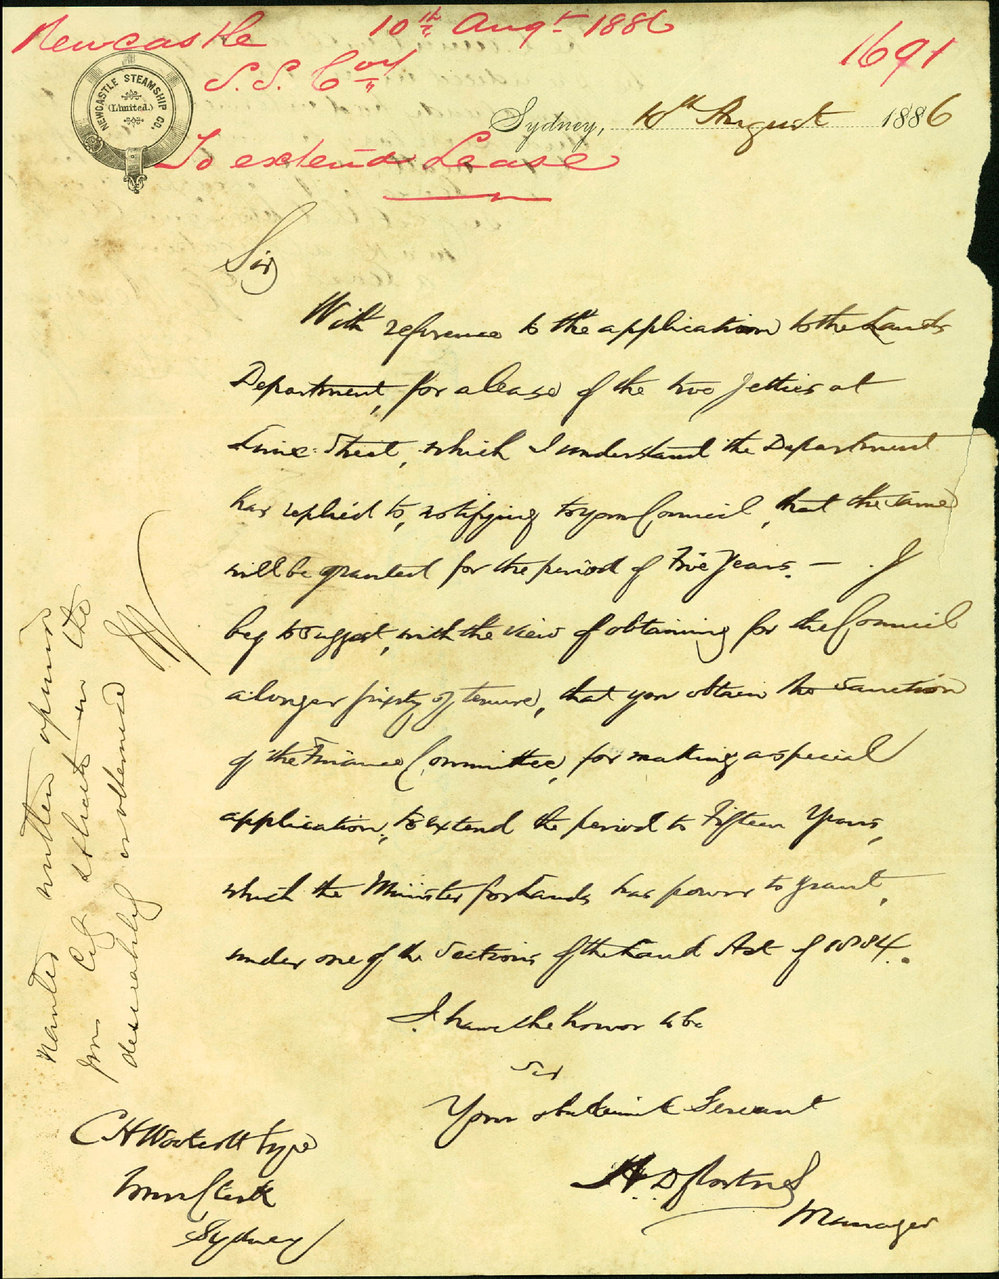 Newcastle 10th Augt 1886
S.S. Coy
1691
To extend Lease
NEWCASTLE STEAMSHIP CO.
(Limited.)
Sydney, 10th August 1886
Sir
With reference to the application to the Lands
Department, for a lease of the two Jetties at
Lime Street, which I understand the Department
has replied to, notifying to your Council, that the same
will be granted for the period of Five Years. — I
beg to suggest, with the view of obtaining for the Council
a longer fixity of tenure, that you obtain the sanction
of the Finance Committee, for making a special
application, to extend the period to Fifteen Years,
which the Minister for Lands has power to grant,
under one of the Sections of the Land Act of 1884.
I have the honor to be
Sir
Your obedient Servant
Manager
C H Woolcott
Town Clerk
Sydney
written opinion
City in the
desirability or otherwise